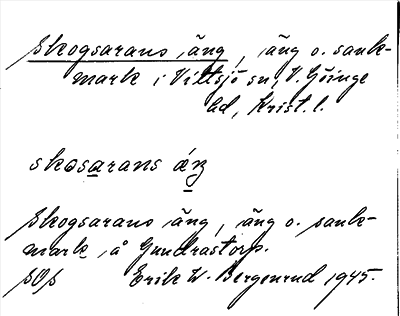 Skogsarans äng, äng o. sank-
mark i Vittsjö sn, V. Göinge
hd, Krist. l.
skosarans áŋ
Skogsarans äng, äng o. sank-
mark i å Gundrastorp.
SOS Erik W. Bergenrud 1945.